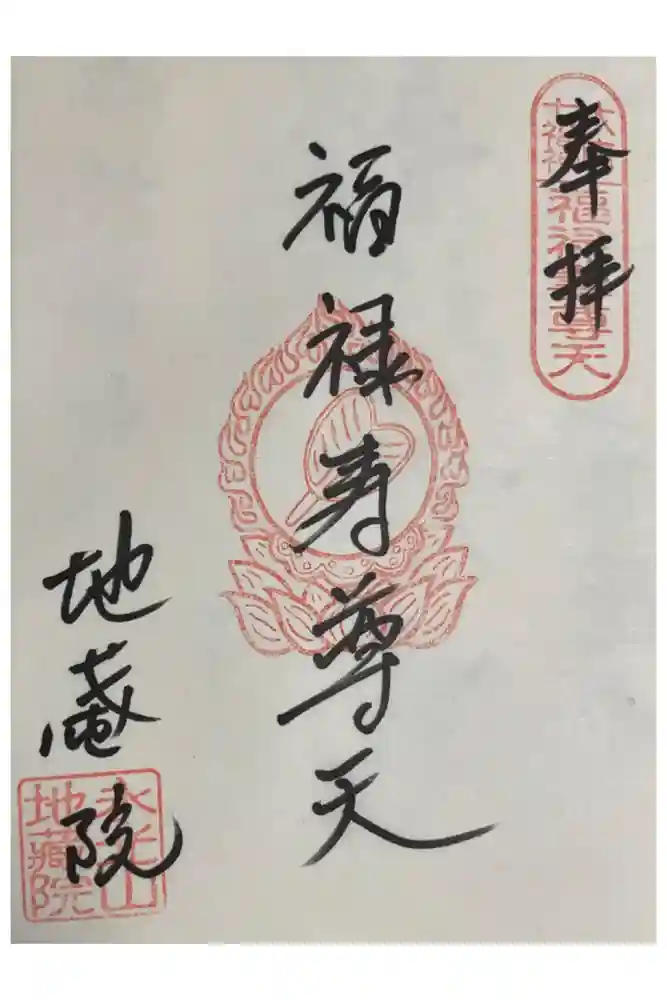 奉拝
福禄寿尊天
地蔵院
福禄寿尊天
地藏院